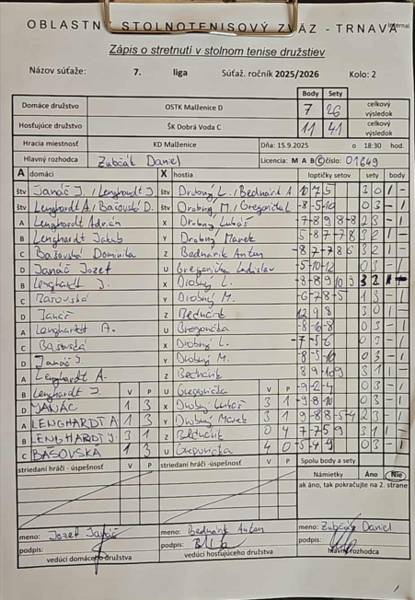 OBLASTNÝ STOLNOTENISOVÝ ZVÄZ - TRNAVA
Zápis o stretnutí v stolnom tenise družstiev
Názov súťaže: 7. liga Súťaž. ročník 2025/2026 Kolo: 2
Body Sety
Domáce družstvo OSTK Malženice D 7 26 celkový výsledok
Hosťujúce družstvo ŠK Dobrá Voda C 11 41 celkový výsledok
Hracia miestnosť KD Malženice Dňa: 15.9.2025 o 18:30 hod.
Hlavný rozhodca Zubčák Daniel Licencia: M A B C číslo: 01649
A domáci X hostia loptičky setov sety body
štv Janáč J. / Lenghardt J štv Drobný L. / Bednárik A 10 7 5 3 0 1 -
štv Lenghardt A / Bašovská D. štv Drobný M. / Gregorička L -8 -5 -10 0 3 - 1
A Lenghardt Adrián X Drobný Lukáš
B Lenghardt Jakub Y Drobný Marek
C Bašovská Dominika Z Bednárik Anton
D Janáč Jozef U Gregorička Ladislav -5 -10 -12 0 3 - 1
B Lenghardt J. X Drobný L. 3 2
C Bašovská Y Drobný M. -6 -7 8 -5 1 3 - 1
D Janáč Z Bednárik 12 9 8 3 0 1 -
A Lenghardt A. U Gregorička -8 -6 -8 0 3 - 1
C Bašovská X Drobný L. -7 -5 -6 0 3 - 1
D Janáč J. Y Drobný M. -8 -5 -10 0 3 - 1
A Lenghardt A. Z Bednárik 3 1 1 -
B Lenghardt J. V P U Gregorička V P -9 -2 -4 0 3 - 1
D JANÁČ 1 3 X Drobný Lukáš 3 1 -9 -8 -10 0 3 - 1
A LENGHARDT A 1 3 Y Drobný Marek 3 1 2 3 - 1
B LENGHARDT J 3 1 Z Bednárik 0 4 3 1 1 -
C BAŠOVSKÁ 1 3 U Gregorička 4 0 -5 -4 -9 0 3 - 1
striedaní hráči - úspešnosť V P striedaní hráči - úspešnosť V P Spolu body a sety
Námietky Áno Nie
ak áno, tak pokračujte na 2. strane
meno: Jozef Janáč meno: Bednárik Anton meno: Zubčák Daniel
podpis: podpis: podpis:
vedúci domáceho družstva vedúci hosťujúceho družstva hlavný rozhodca